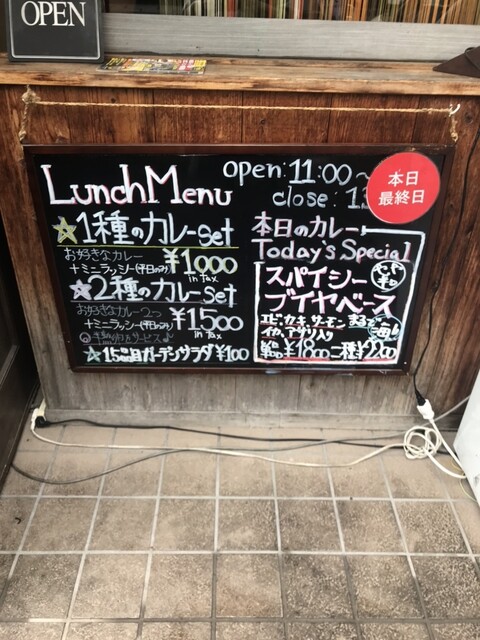 OPEN
Lunch Menu
open: 11:00～
close: 1
本日
最終日
☆1種のカレーset
お好きなカレー
+ミニラッシー(平日のみ) ¥1000
in tax
☆2種のカレーset
お好きなカレー2つ
+ミニラッシー(平日のみ) ¥1500
in tax
サービス♪
☆15品目ガーデンサラダ ¥100
本日のカレー
Today's Special
スパイシー
ブイヤベース
エビ・カキ・サーモン
イカ、アサリ入り
¥1800 二種¥2200